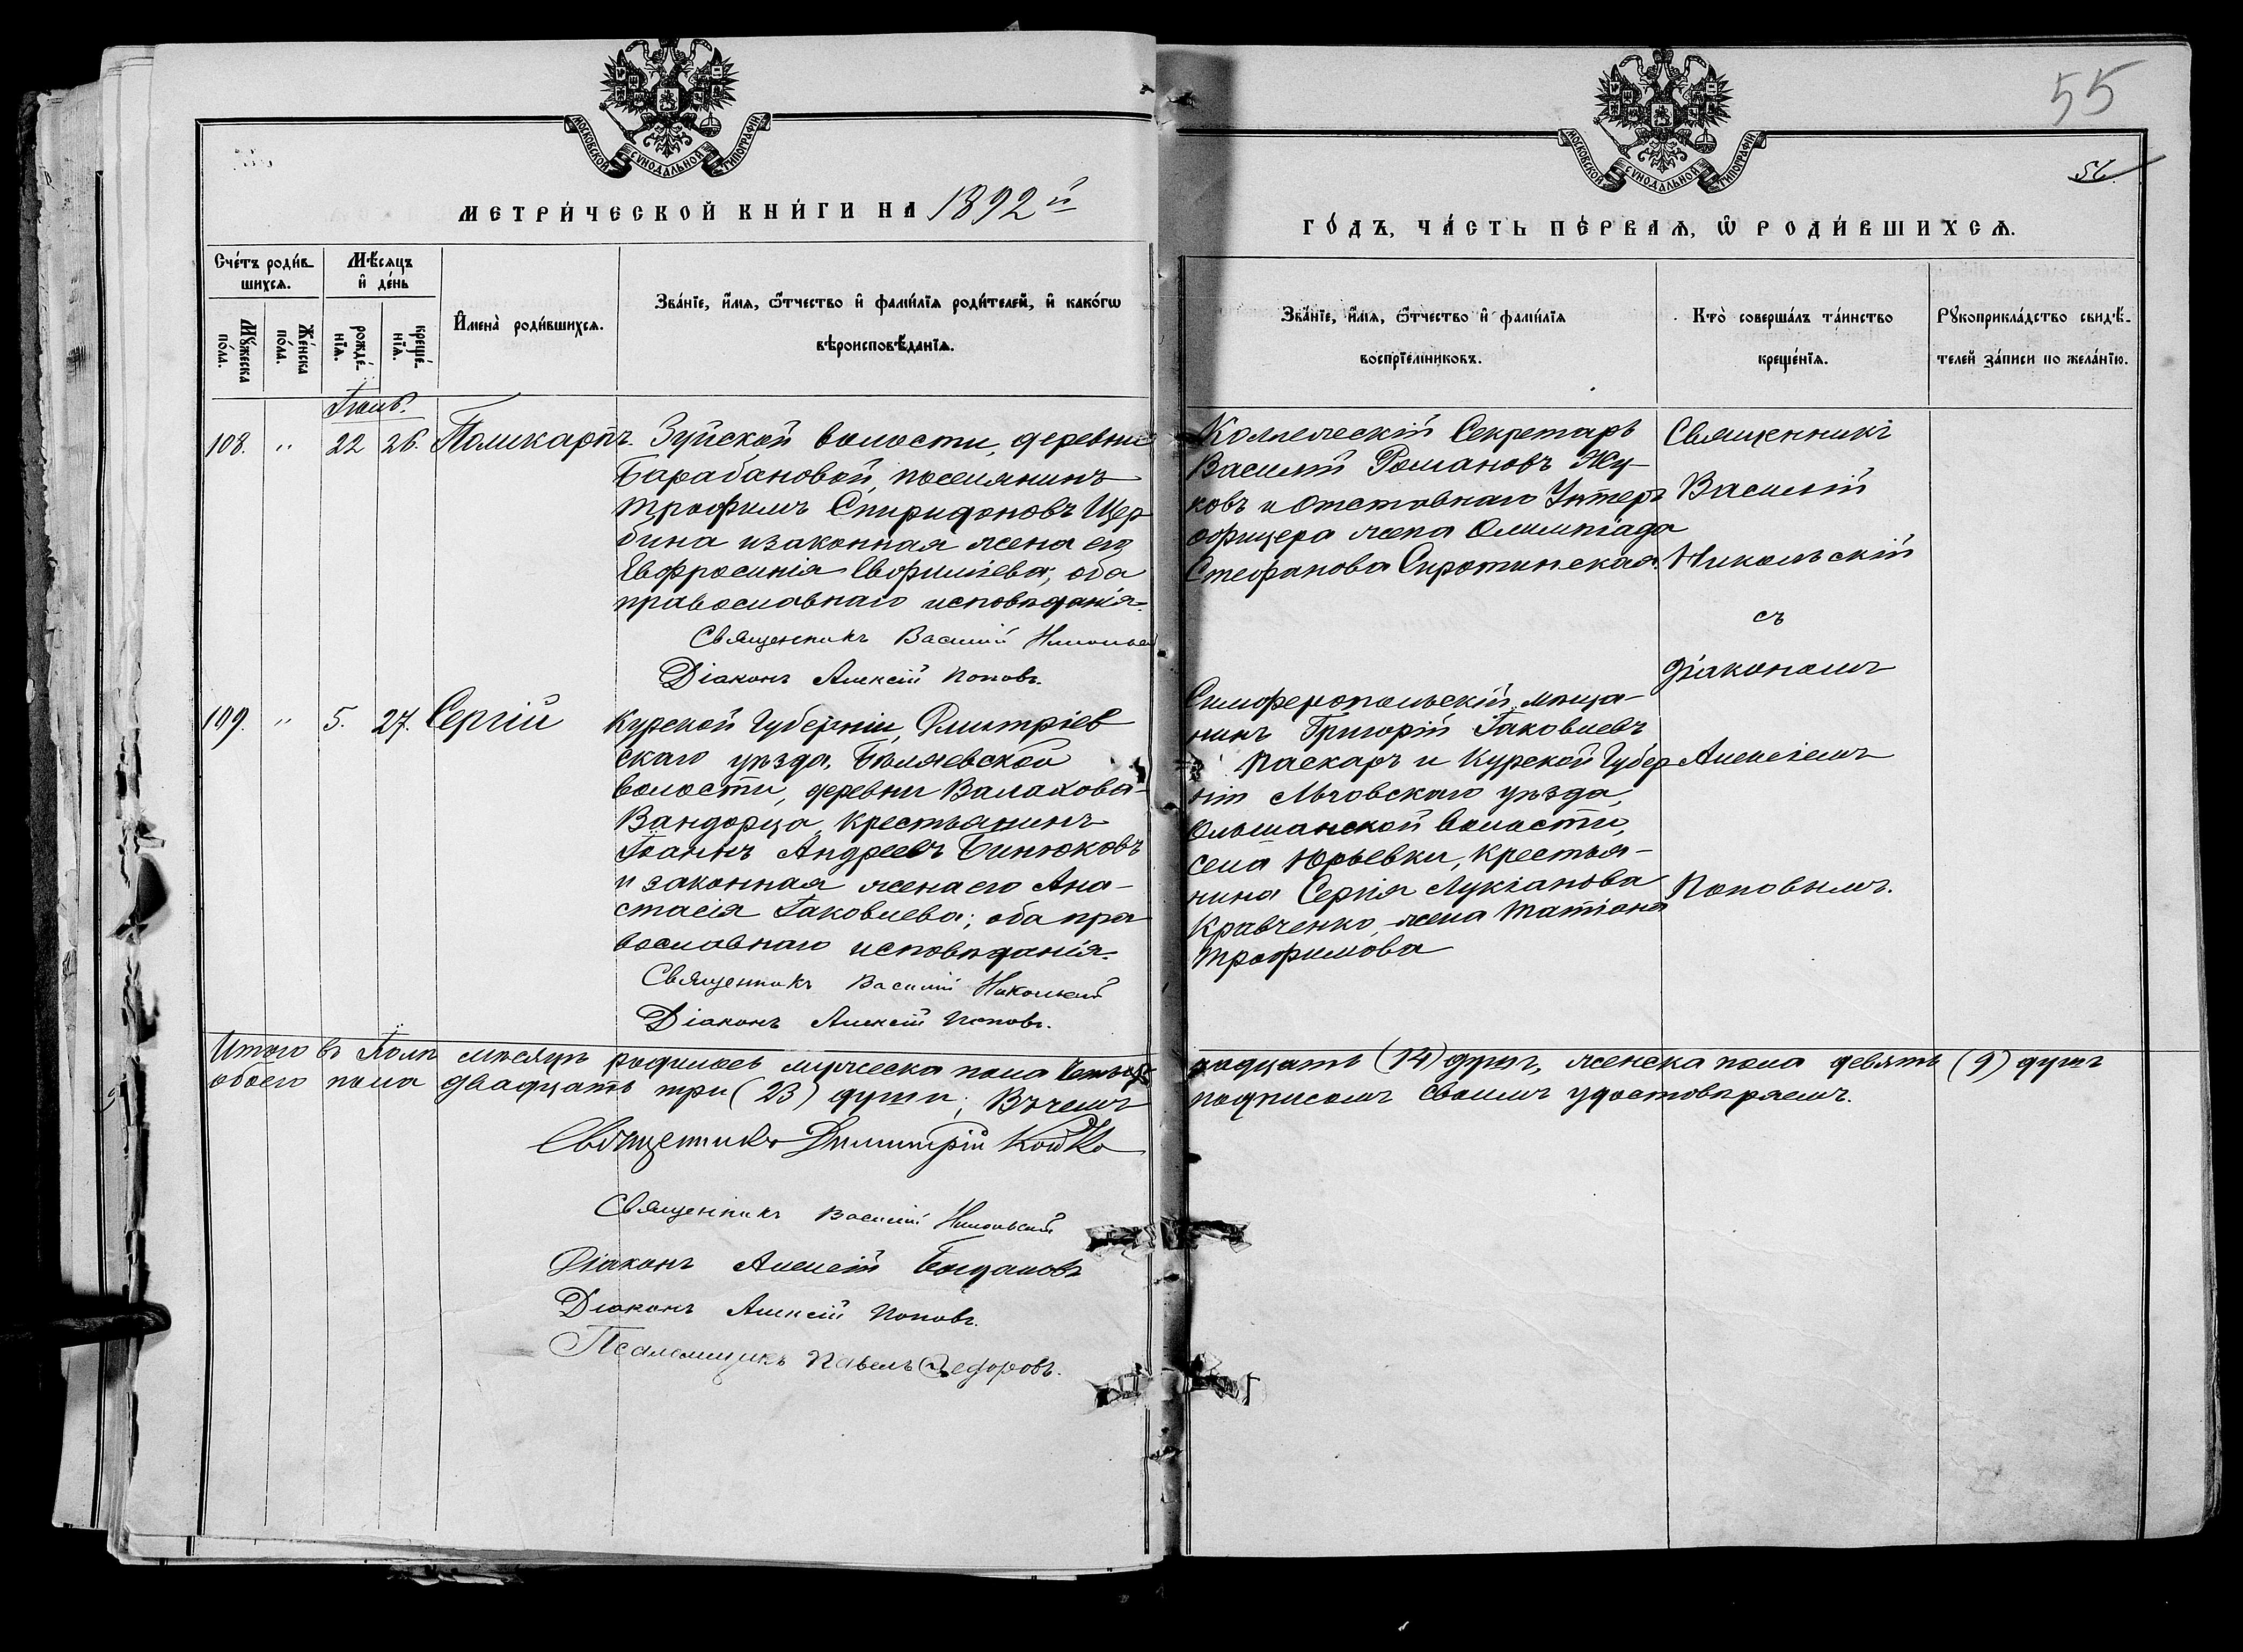 55
56
МОСКОВСКОЙ СѴНОДАЛЬНОЙ ТИПОГРАФІИ
МОСКОВСКОЙ СѴНОДАЛЬНОЙ ТИПОГРАФІИ
МЕТРИ́ЧЕСКОЙ КНИ́ГИ НА 1892й
ГО́ДЪ, ЧА́СТЬ ПЕ́РВАѦ, Ѡ҆ РОДИ́ВШИХСѦ.
Сче́тъ роди́в-
шихсѧ.
Мѣ́сяцъ
и҆ де́нь
Мꙋ́жеска
по́ла.
Же́нска
по́ла.
рожде́-
нїѧ.
креще́-
нїѧ.
И҆мена̀ роди́вшихсѧ.
Зва́нїе, и҆́мѧ, ѻ҆́тчество и҆ фами́лїѧ роди́телей, и҆ како́гѡ
вѣроисповѣ́данїѧ.
Зва́нїе, и҆́мѧ, ѻ҆́тчество и҆ фами́лїѧ
воспрїе́мниковъ.
Кто̀ соверша́лъ та́инство
креще́нїѧ.
Рꙋкоприкла́дство свидѣ́-
телей за́писи по жела́нїю.
108. " 22 26. Поликарпъ.
Зуйской волости, деревни
Барабановой, поселянинъ
Трофимъ Спиридоновъ Щер
бина и законная жена его
Евфросинія Евфиміева; оба
православнаго исповѣданія.
Священникъ Василій Никольс
Діаконъ Алексій Поповъ.
Коллежскій Секретарь
Василій Романовъ Жу-
ковъ и отставнаго Унтеръ
офицера жена Олимпіада
Стефанова Сиротинская.
Священникъ
Василій
Никольскій
съ
діакономъ
Алексіемъ
Поповымъ.
109. " 5. 27. Сергій
Курской Губерніи, Дмитріев
скаго уѣзда,
волости, деревни
крестьянинъ
Іоаннъ Андреевъ Бинюковъ
и законная жена его Ана-
стасія Іаковлева; оба пра
вославнаго исповѣданія.
Священникъ Василій Никольскій
Діаконъ Алексій Поповъ.
Симферопольскій мѣща-
нинъ Григорій Іаковлевъ
Паскаръ и Курской Губер
ніи Льговскаго уѣзда,
Ольшанской волости,
села Юрьевки, крестья-
нина Сергія Лукіанова
Кравченко, жена Татіана
Трофимова
Итого въ Іюлѣ мѣсяцѣ родилось мужеска пола Четыр
надцать (14) душъ, женска пола девять (9) душъ
обоего пола двадцать три (23) души; Въ чемъ
подписомъ своимъ удостовѣряемъ.
Священникъ Димитрій Койко
Священникъ Василій Никольскій
Діаконъ Алексій Богдановъ
Діаконъ Алексій Поповъ.
Псаломщикъ Павелъ Федоровъ.